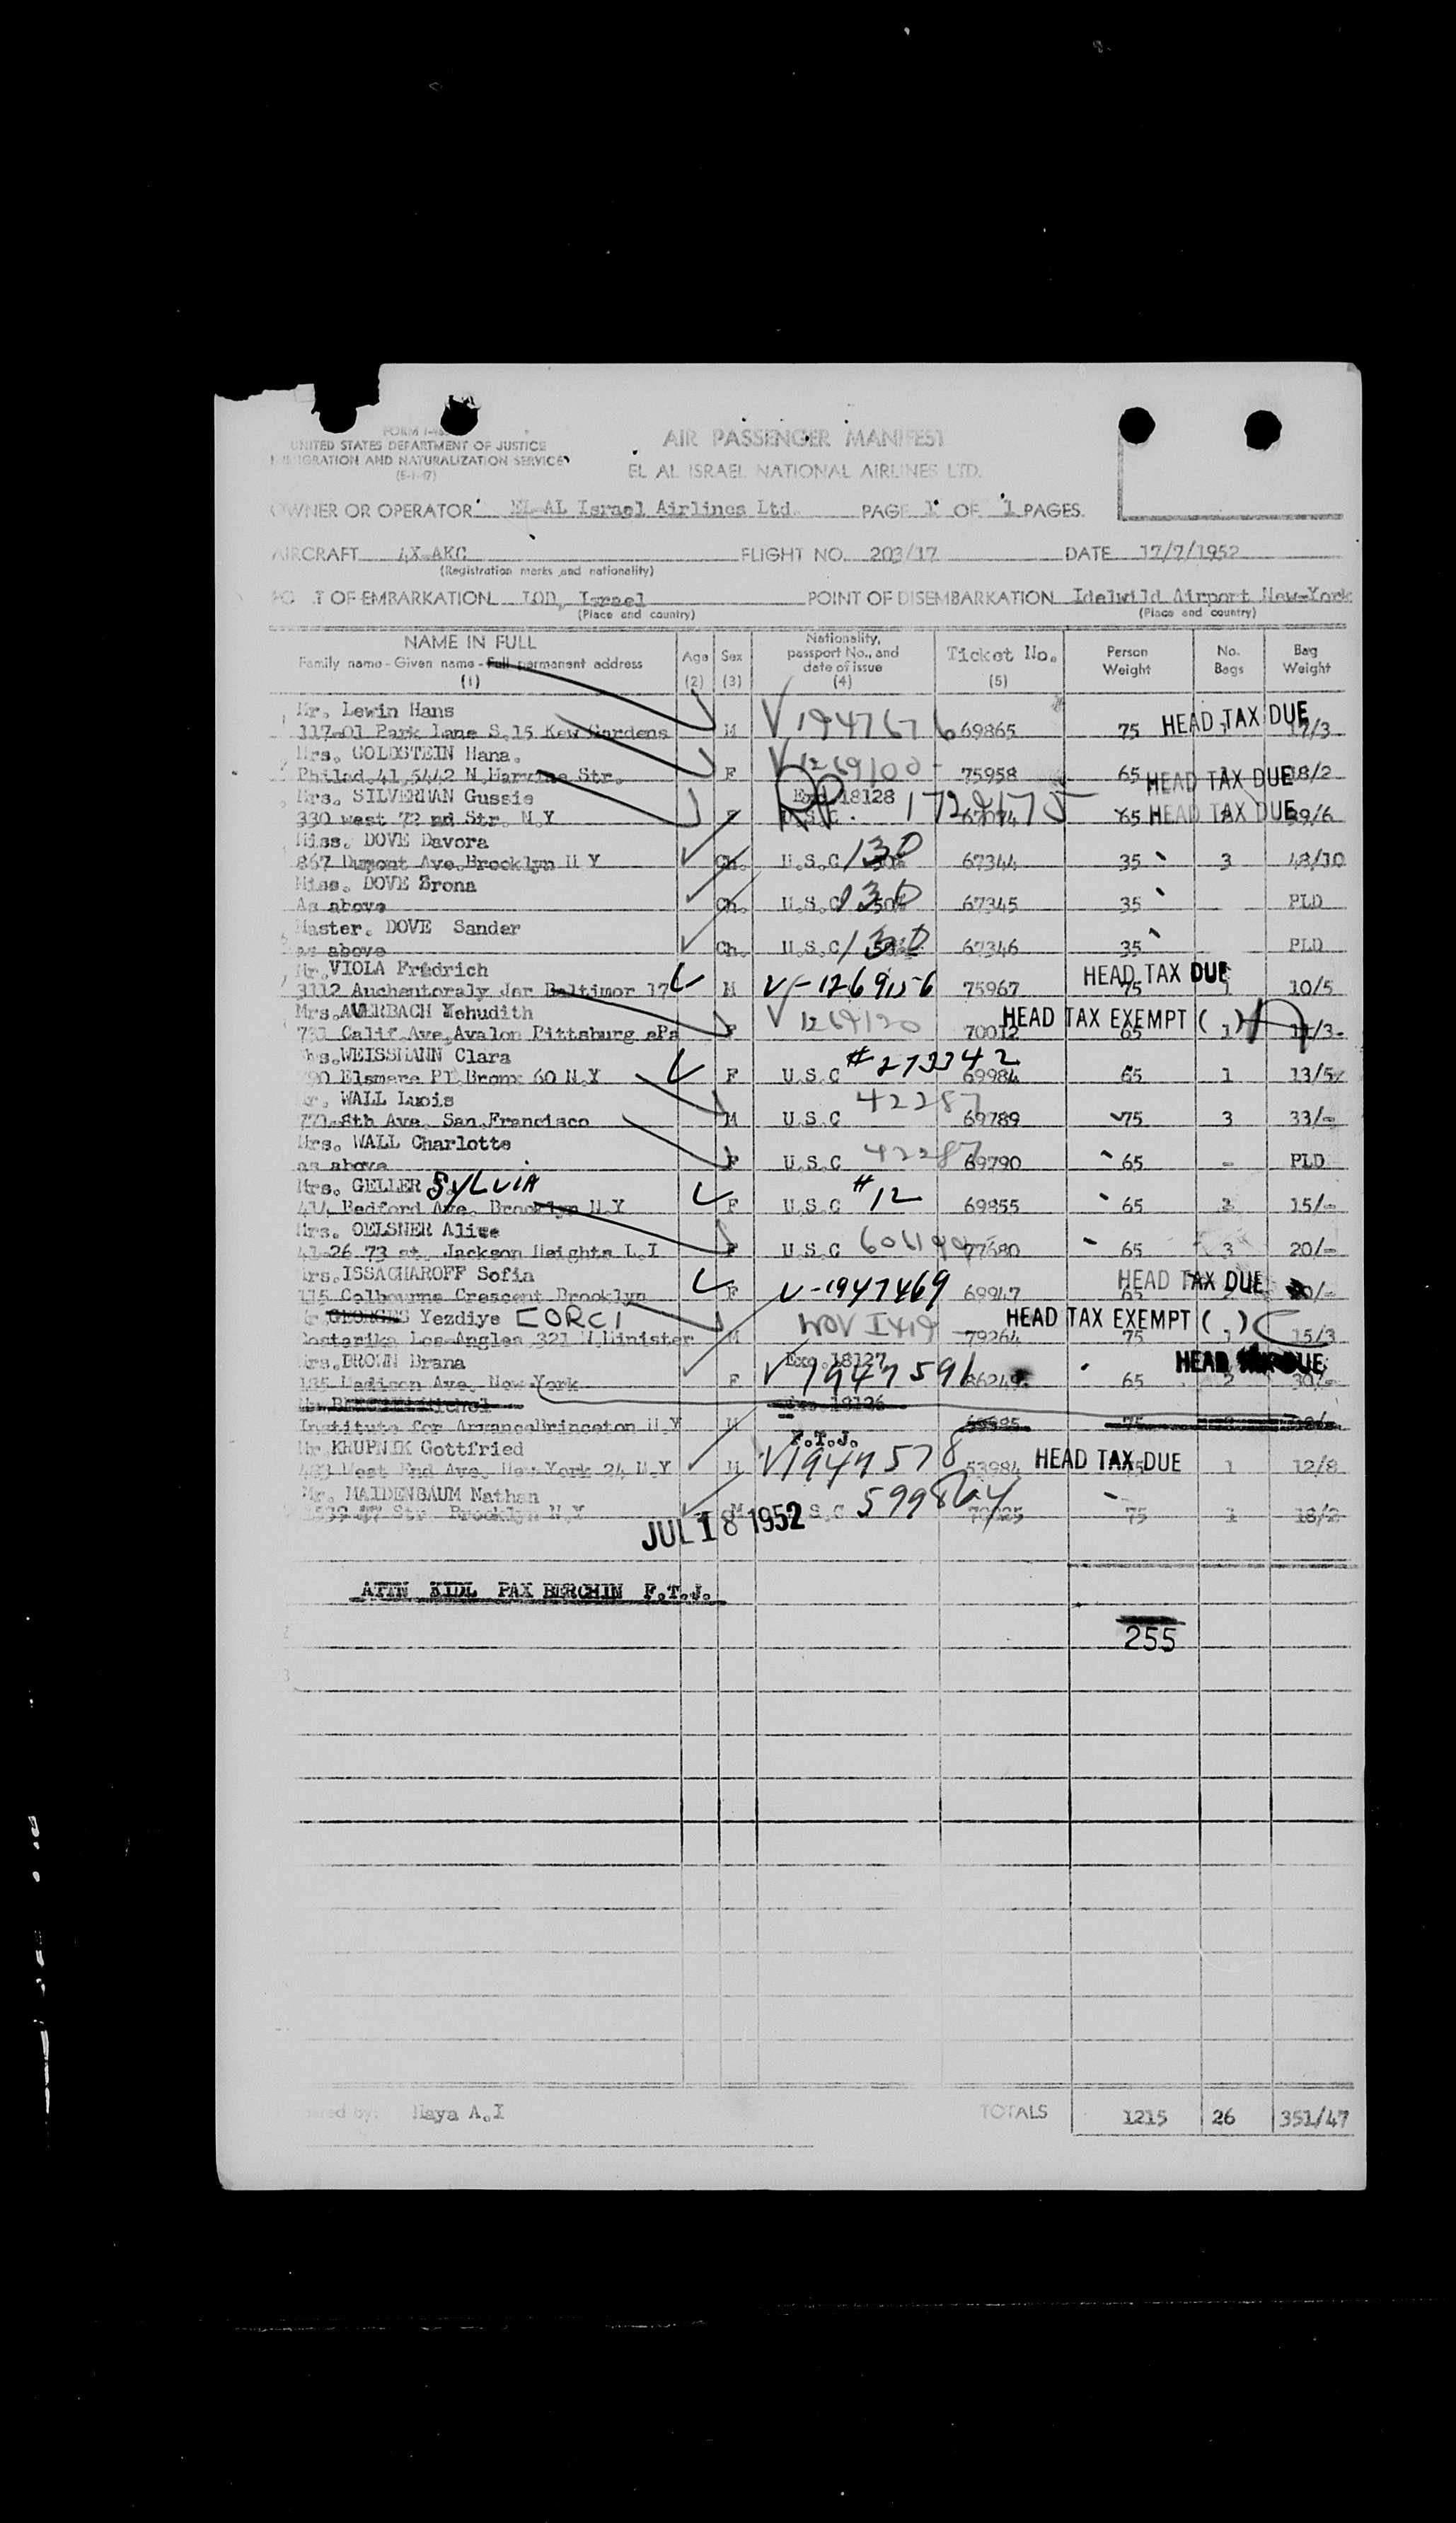 FORM I-
UNITED STATES DEPARTMENT OF JUSTICE
IMMIGRATION AND NATURALIZATION SERVICE
(5-1-47)
AIR PASSENGER MANIFEST
EL AL ISRAEL NATIONAL AIRLINES LTD.
OWNER OR OPERATOR EL AL Israel Airlines Ltd. PAGE 1 OF 1 PAGES
AIRCRAFT 4X-AKC FLIGHT NO. 203/17 DATE 17/7/1952
(Registration marks and nationality)
T OF EMBARKATION LOD, Israel POINT OF DISEMBARKATION Idelwild Airport New-York
(Place and country) (Place and country)
NAME IN FULL Age Sex Nationality, passport No., and date of issue Ticket No. Person Weight No. Bags Bag Weight
Family name - Given name - Full permanent address
(1) (2) (3) (4) (5)
Mr. Lewin Hans
117-01 Park Lane S.15 Kew Gardens M V 1947676 69865 75 HEAD TAX DUE 17/3
Mrs. GOLDSTEIN Hana.
Philad.41,5442 N. Str. F V 1269100 75958 65 HEAD TAX DUE 18/2
Mrs. SILVERMAN Gussie 18128
330 west 72 nd Str. N.Y RP. 65 HEAD TAX DUE
Miss. DOVE Davora
867 Dumont Ave.Brooklyn N Y Ch. U.S.C 130 67344 35 3 48/10
Miss. DOVE Brona
As above Ch. U.S.C 130 67345 35 PLD
Master. DOVE Sander
as above Ch. U.S.C 130 67346 35 PLD
Mr. VIOLA Fredrich
3112 Auchentoraly Baltimor 17 M 75967 75 HEAD TAX DUE 1 10/5
Mrs. AVERBACH Yehudith
731 Calif.Ave.Avalon Pittsburg F V 1269120 70012 65 HEAD TAX EXEMPT ( ) 1
WEISSMANN Clara
Elsmere Pl.Bronx 60 N.Y F U.S.C #273342 69984 65 1 13/5
WALL Luois
8th Ave. San.Francisco M U.S.C 42287 69789 75 3 33/-
Mrs. WALL Charlotte
as above F U.S.C 42287 69790 65 - PLD
Mrs. GELLER SYLVIA
414 Bedford Ave. Brooklyn N.Y F U.S.C #12 69855 65 15/-
Mrs. OELSNER Alice
41-26 73 st. Jackson Heights L.I F U.S.C 77680 65 3 20/-
Mrs. ISSACHAROFF Sofia
115 Colbourne Crescent Brooklyn F V-1947469 69947 65 HEAD TAX DUE
Yezdiye CORCI
Costarika Los-Angles 321 W.Minister M 79264 75 HEAD TAX EXEMPT ( ) 1 15/3
Mrs. BROWN Brana 18127
185 Madison Ave. New-York F V1947591 86249 65 HEAD TAX DUE 2 30/-
Institute for N.Y M 75
Mr. KRUPNIK Gottfried F.T.J.
West End Ave. New York 24 N.Y M V1947578 53984 HEAD TAX DUE 1 12/8
Mr. MAIDENBAUM Nathan
47 Str. Brooklyn N.Y M 75 1 18/2
JUL 18 1952
ATTN KIDL PAX BERCHIN F.T.J.
255
by: Haya A.I TOTALS 1215 26 351/47